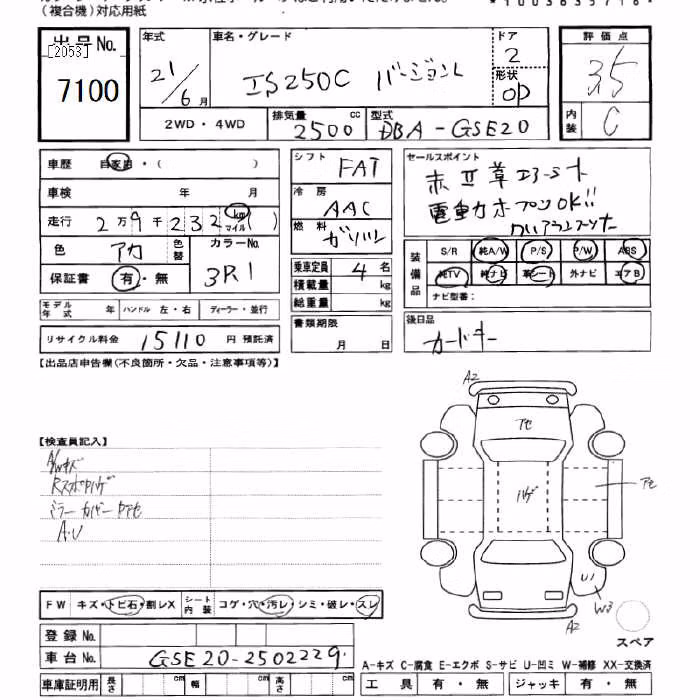 （複合機）対応用紙
出品No.
[2053]
7100
年式 車名・グレード ドア 評価点
21/6月 IS250C バージョンL 2 形状 OP 3.5
2WD・4WD 排気量 cc 2500 型式 DBA-GSE20 内装 C
車歴 自家用・( )
車検 年 月
走行 2万9千232 km マイル ( )
色 アカ 色替 カラーNo. 3R1
保証書 有・無
モデル年式 年 ハンドル 左・右 ディーラー・並行
リサイクル料金 15110 円 預託済
シフト FAT
冷房 AAC
燃料 ガソリン
乗車定員 4 名
積載量 kg
総重量 kg
書類期限 月 日
セールスポイント
赤 革
電動 OK!!
装備品
S/R 純A/W P/S P/W ABS
純TV 純ナビ 革シート 外ナビ エアB
ナビ型番：
後日品
カードキー
【出品店申告欄（不良箇所・欠品・注意事項等）】
【検査員記入】
A/Wキズ
ミラーカバー
A.U
A2
アセ
ハゲ
アセ
U1
W3
A2
スペア
FW キズ・トビ石・割レX シート内装 コゲ・穴・汚レ・シミ・破レ・スレ
登録No.
車台No. GSE20-2502229
車庫証明用 長さ cm 幅 cm 高さ cm
A-キズ C-腐食 E-エクボ S-サビ U-凹ミ W-補修 XX-交換済
工具 有・無 ジャッキ 有・無